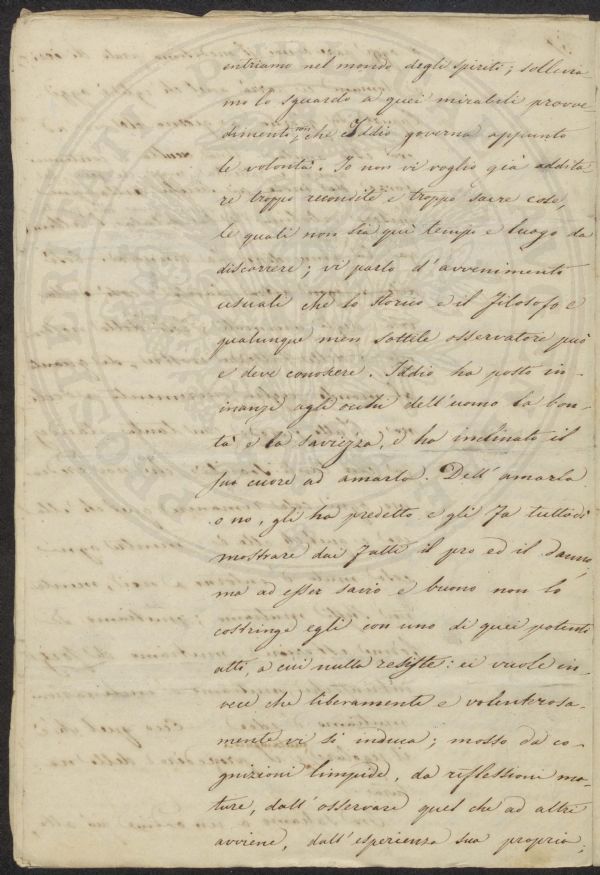 entriamo nel mondo degli spiriti; sollevia
mo lo sguardo a quei mirabili provve
dimenti, che Iddio governa appunto
le volontà. Io non vi voglio già addita
re troppo recondite e troppo sacre cose,
le quali non sia qui tempo e luogo da
discorrere; vi parlo d'avvenimenti
usuali che lo storico e il filosofo e
qualunque men sottile osservatore può
e deve conoscere. Iddio ha posto in-
nanzi agli occhi dell'uomo la bon-
tà e la saviezza, e ha inclinato il
suo cuore ad amarla. Dell'amarla
o no, gli ha predetto e gli fa tuttodì
mostrare dai fatti il pro ed il danno,
ma ad esser savio e buono non lo
costringe egli con uno di quei potenti
atti, a cui nulla resiste: ei vuole in-
vece che liberamente e volenterosa-
mente vi si induca; mosso da co-
gnizioni limpide, da riflessioni ma-
ture, dall'osservare quel che ad altri
avviene, dall'esperienza sua propria;